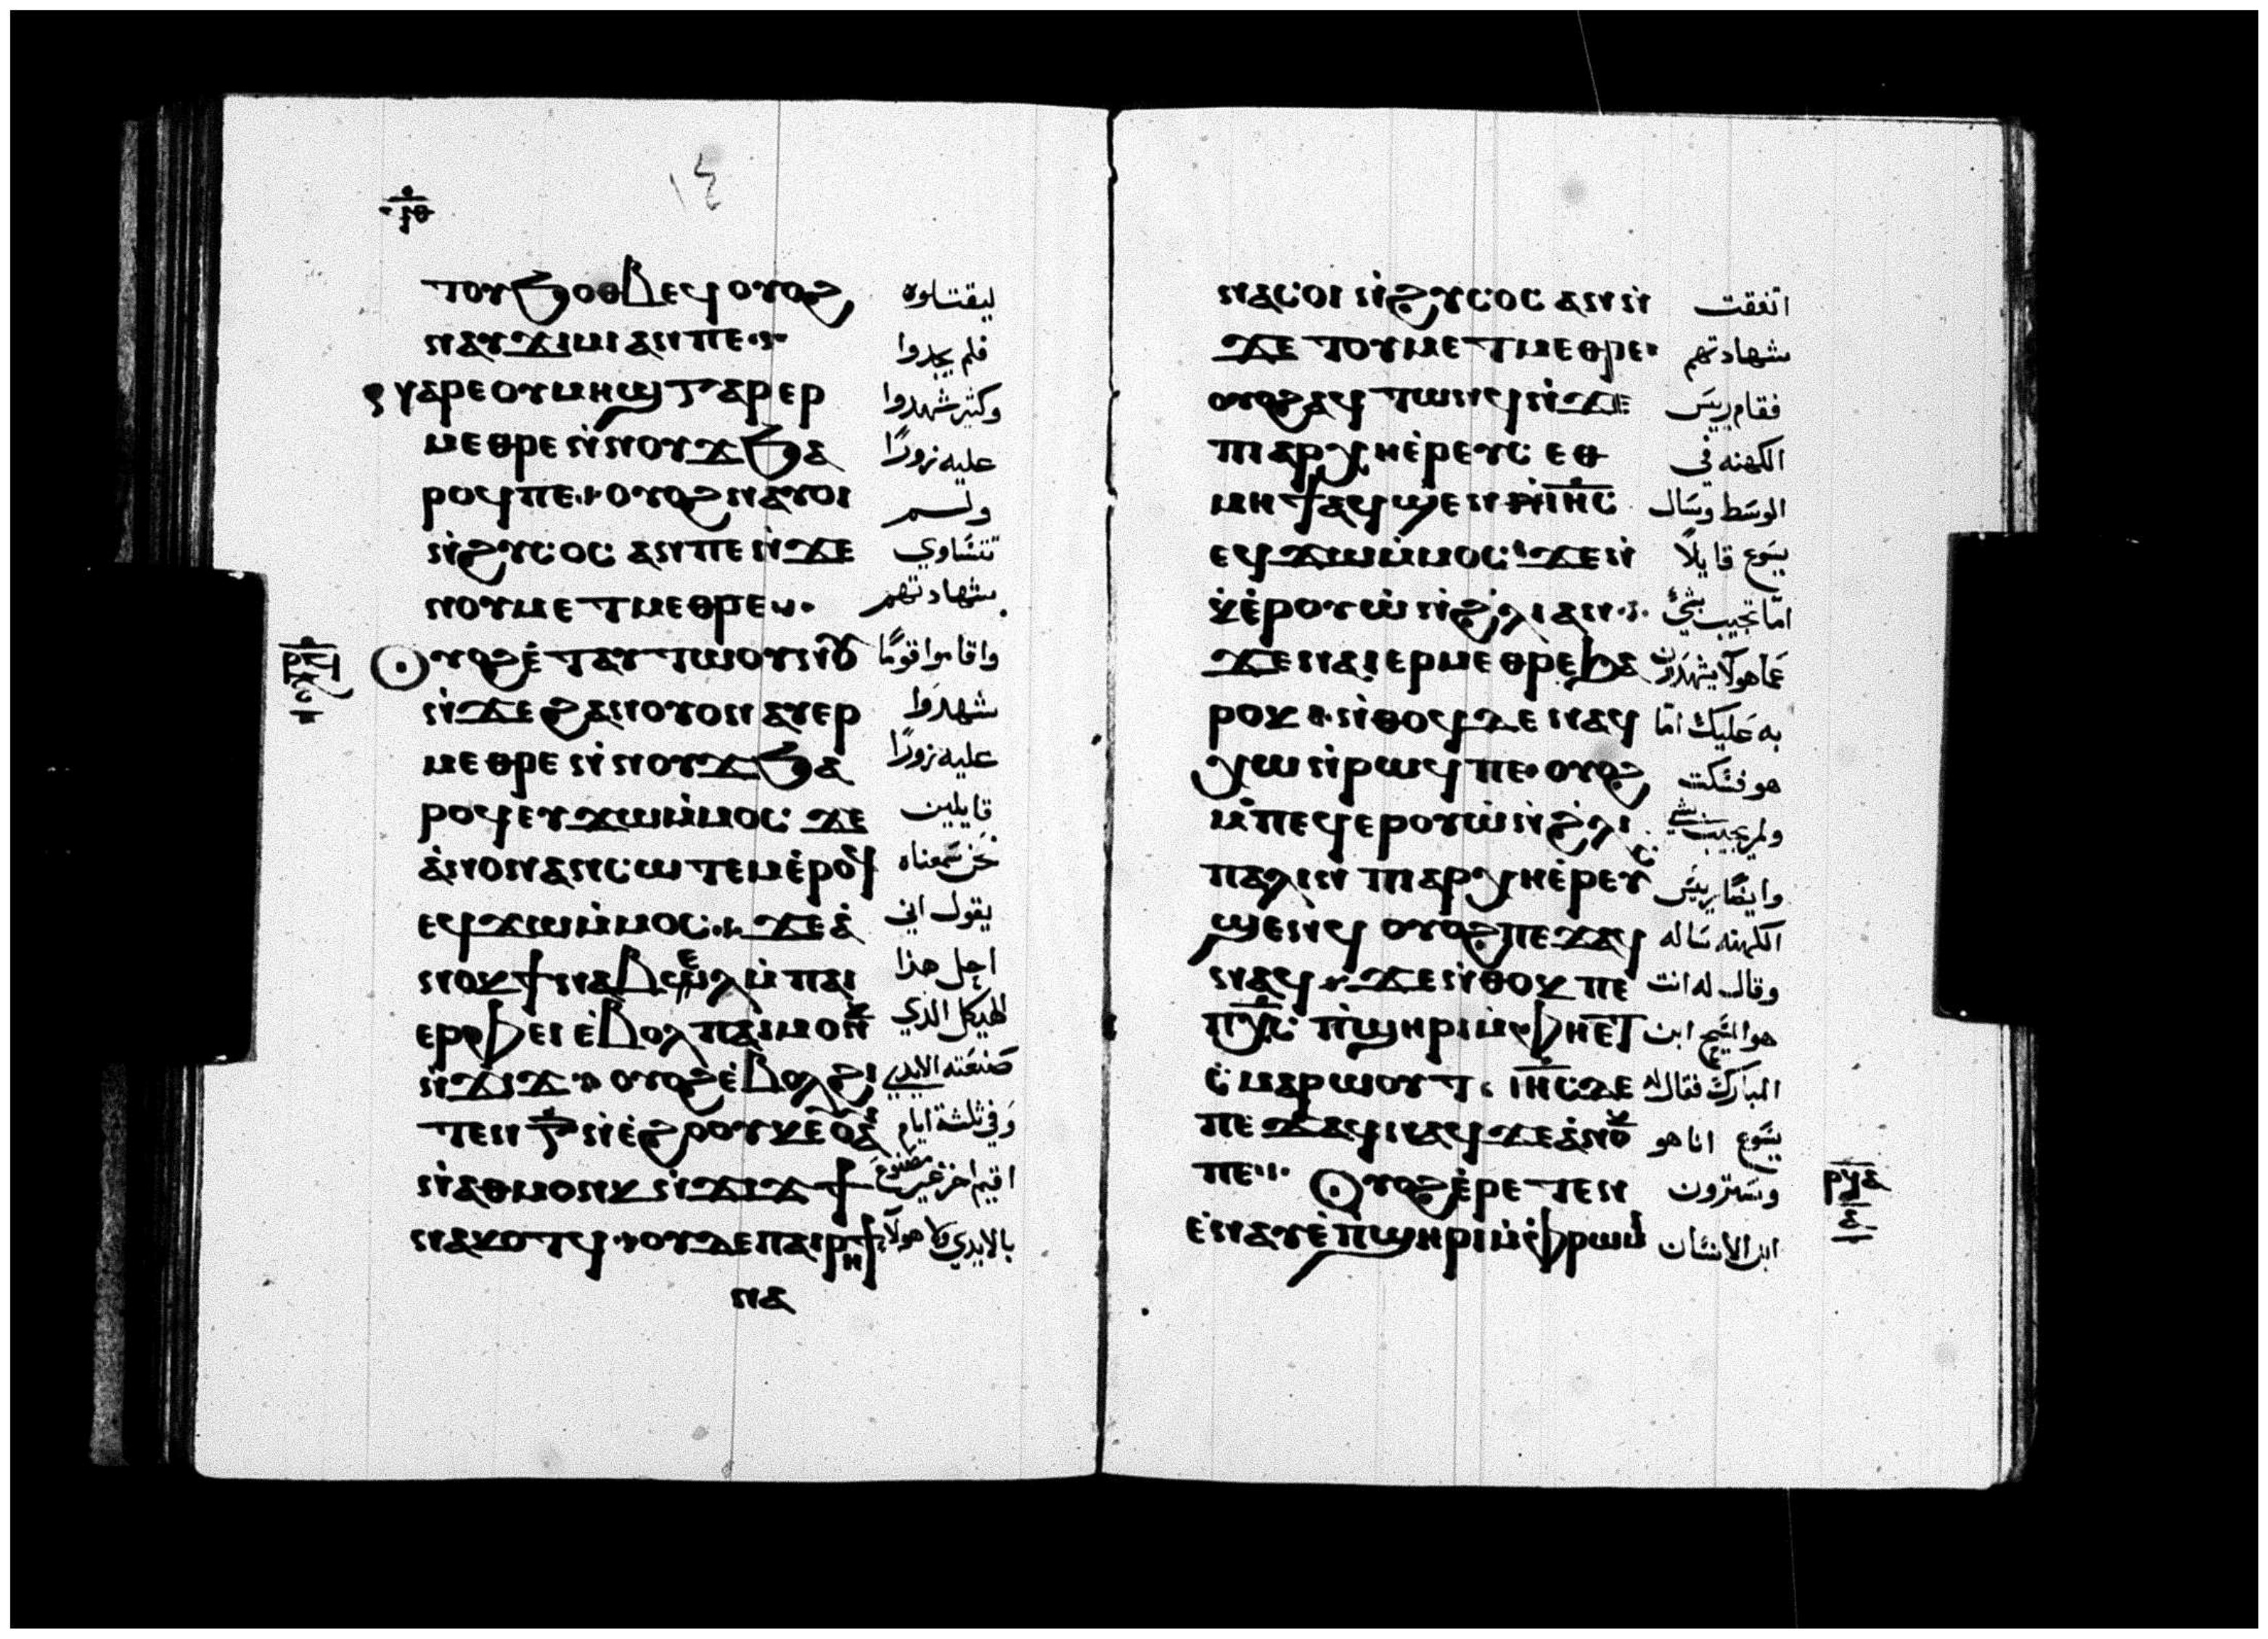 ١٤
ⲧⲟⲩϧⲟⲑⲃⲉϥ ⲟⲩⲟϩ ليقتلوه
ⲛⲁⲩϫⲓⲙⲓ ⲁⲛ ⲡⲉ فلم يجدوا
ⲛⲁⲣⲉ ⲟⲩⲙⲏϣ ⲅⲁⲣ ⲉⲣ وكثير شهدوا
ⲙⲉⲑⲣⲉ ⲛ̇ⲛⲟⲩϫ ϧⲁ عليه زورًا
ⲣⲟϥ ⲡⲉ ⲟⲩⲟϩ ⲛⲁⲩⲟⲓ ولم
ⲛ̇ϩⲩⲥⲟⲥ ⲁⲛ ⲡⲉ ⲛ̇ϫⲉ تتساوي
ⲛⲟⲩⲙⲉⲧⲙⲉⲑⲣⲉⲩ شهادتهم
ⲣϥ ⲟⲩⲟϩ ⲉ̇ⲧⲁⲩⲧⲱⲟⲩⲛⲟⲩ واقاموا قومًا
ⲛ̇ϫⲉ ϩⲁⲛⲟⲩⲟⲛ ⲁⲩⲉⲣ شهدوا
ⲙⲉⲑⲣⲉ ⲛ̇ⲛⲟⲩϫ ϧⲁ عليه زورًا
ⲣⲟϥ ⲉⲩϫⲱ ⲙ̇ⲙⲟⲥ ϫⲉ قايلين
ⲁ̇ⲛⲟⲛ ⲁⲛⲥⲱⲧⲉⲙ ⲉ̇ⲣⲟϥ نحن سمعناه
ⲉϥϫⲱ ⲙ̇ⲙⲟⲥ ϫⲉ ⲁ̇ يقول اني
ⲛⲟⲕ ϯⲛⲁⲃⲉⲗ ⲙ̇ⲡⲁⲓ احل هذا
ⲉⲣⲫⲉⲓ ⲉ̇ⲃⲟⲗ ⲡⲁⲓⲙⲟⲛⲕ الهيكل الذي
ⲛ̇ϫⲓϫ ⲟⲩⲟϩ ⲉ̇ⲃⲟⲗ ϩⲓ صنعته الايدي
ⲧⲉⲛ ⲅ̅ ⲛ̇ⲉ̇ϩⲟⲟⲩ ⲕⲉⲟⲩⲁⲓ وفي ثلثة ايام
ⲛ̇ⲁⲑⲙⲟⲛⲕ ⲛ̇ϫⲓϫ ϯ اقيم اخر غير مصنوع
ⲛⲁⲕⲟⲧϥ ⲟⲩⲇⲉ ⲡⲁⲓⲣⲏϯ بالايدي ولا هولاء
ⲛⲁ
ⲛⲁⲥⲟⲓ ⲛ̇ϩⲩⲥⲟⲥ ⲁⲛ ⲛ̇ اتفقت
ϫⲉ ⲧⲟⲩⲙⲉⲧⲙⲉⲑⲣⲉ شهادتهم
ⲟⲩⲟϩ ⲁϥⲧⲱⲛϥ ⲛ̇ϫⲉ فقام ريس
ⲡⲓⲁⲣⲭⲏⲉ̇ⲣⲉⲩⲥ ⲉⲑ الكهنه في
ⲙⲏϯ ⲁϥϣⲉⲛ ⲓⲏ̅ⲥ̅ الوسط وسال
ⲉϥϫⲱ ⲙ̇ⲙⲟⲥ ϫⲉ ⲛ̇ يسوع قايلاً
ⲕ̇ⲉ̇ⲣⲟⲩⲱ̇ ⲛ̇ϩⲗⲓ ⲁⲛ اما تجيب بشي
ϫⲉ ⲛⲁⲓ ⲉⲣⲙⲉⲑⲣⲉ ϧⲁ عما هولا يشهدون
ⲣⲟⲕ ⲛ̇ⲑⲟϥ ⲇⲉ ⲛⲁϥ به عليك اما
ⲭⲱ ⲛ̇ⲣⲱϥ ⲡⲉ ⲟⲩⲟϩ هو فسكت
ⲙ̇ⲡⲉϥⲉⲣⲟⲩⲱ̇ ⲛ̇ϩ̇ⲗⲓ ولم يجيب بشي
ⲡⲁⲗⲓⲛ ⲡⲓⲁⲣⲭⲏⲉ̇ⲣⲉⲩⲥ وايضًا ريس
ϣⲉⲛϥ ⲟⲩⲟϩ ⲡⲉϫⲁϥ الكهنه ساله
ⲛⲁϥ ϫⲉ ⲛ̇ⲑⲟⲕ ⲡⲉ وقال له انت
ⲡⲭ̅ⲥ̅ ⲡ̇ϣⲏⲣⲓ ⲙ̇ⲫⲏⲉⲧ هو المسيح ابن
ⲥ̇ⲙⲁⲣⲱⲟⲩⲧ ⲓⲏ̅ⲥ̅ ⲇⲉ المبارك فقال له
ⲡⲉϫⲁϥ ⲛⲁϥ ϫⲉ ⲁ̇ⲛⲟⲕ يسوع انا هو
ⲡⲉ ⲟⲩⲟϩ ⲉ̇ⲣⲉⲧⲉⲛ وسترون
ⲉ̇ⲛⲁⲩ ⲉ̇ⲡϣⲏⲣⲓ ⲙ̇ⲫⲣⲱⲙⲓ ابن الانسان